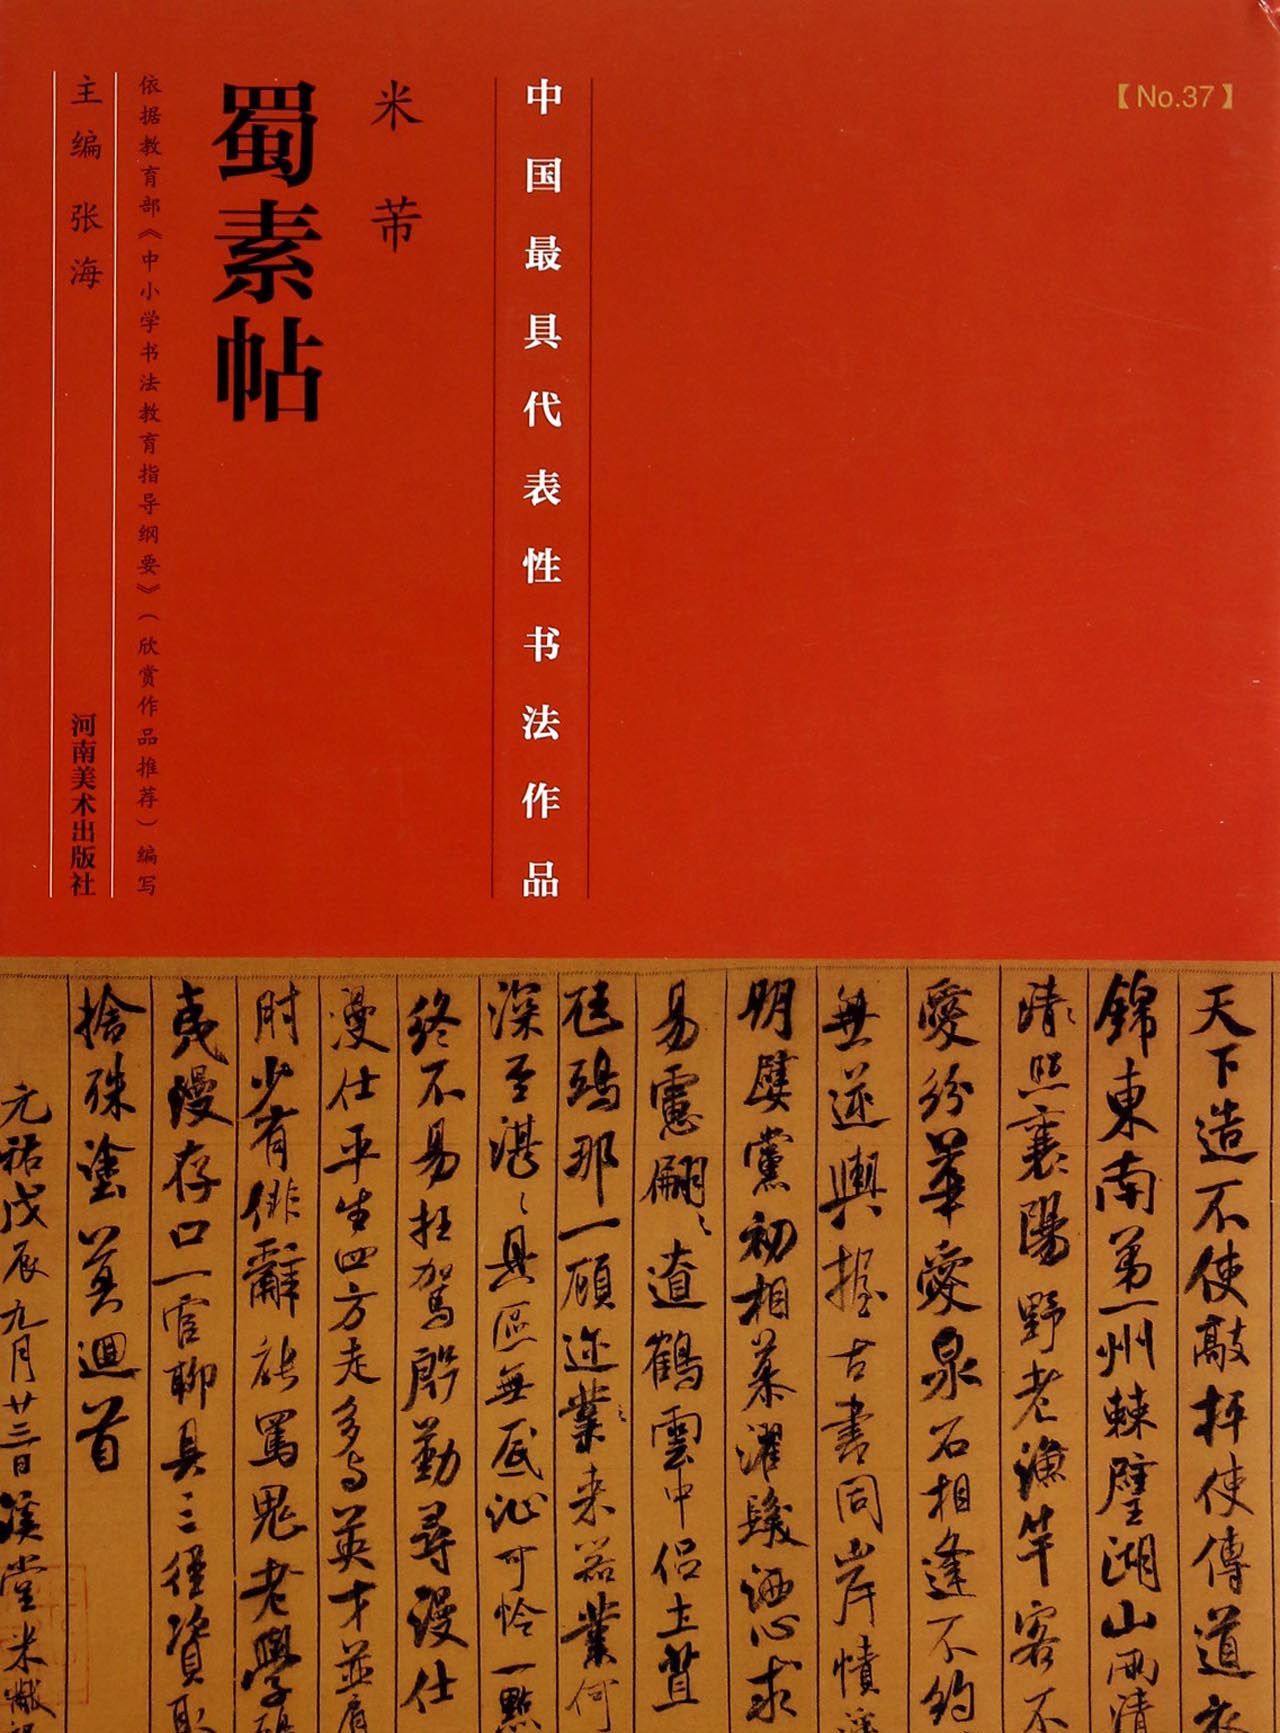 【No.37】
中国最具代表性书法作品
米芾
蜀素帖
依据教育部《中小学书法教育指导纲要》（欣赏作品推荐）编写
主编 张海
河南美术出版社
天下造不使敲抨使傳道衣
錦東南第一州棘璧湖山兩清
清照襄陽野老漁竿客不
愛紛華愛泉石相逢不約
無逆輿握古書同岸幘淫
明嬖黨初相慕濯髮洒心求
易慮翩翩遼鶴雲中侣土苴
尪鴟那一顧邇來器業何
深至湛湛具區無底沚可怜一點
終不易枉駕殷勤尋漫仕
漫仕平生四方走多与英才並肩
肘少有俳辭能罵鬼老學鴟
夷漫存口一官聊具三徑資取
捨殊塗莫迴首
元祐戊辰九月廿三日溪堂米黻記